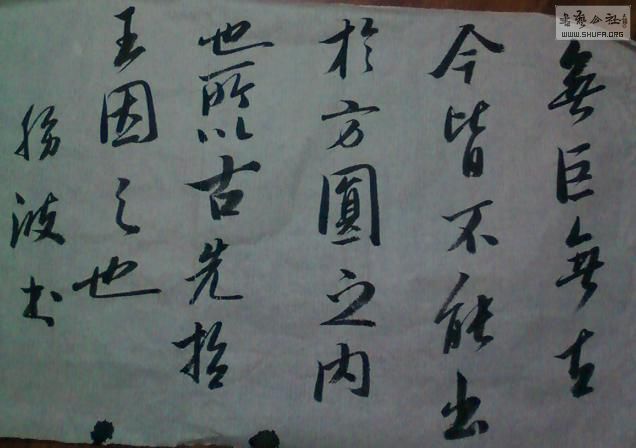 無巨無古
今皆不能出
於方圓之内
也所以古先哲
王因之也
勝波书
书艺公社
WWW.SHUFA.ORG